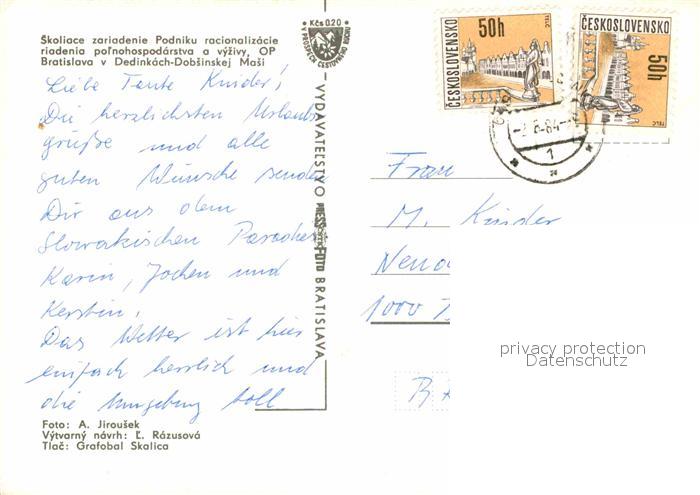 Školiace zariadenie Podniku racionalizácie
riadenia poľnohospodárstva a výživy, OP
Bratislava v Dedinkách-Dobšinskej Maši
Liebe Tante Kinder!
Die herzlichsten Urlaubs
grüße und alle
guten Wünsche senden
Dir aus dem
Slowakischen Paradies
Karin, Jochen und
Kerstin.
Das Wetter ist hier
einfach herrlich und
die Umgebung toll
Foto: A. Jiroušek
Výtvarný návrh: Ľ. Rázusová
Tlač: Grafobal Skalica
Kčs 0,20
V PROSPECH CESTOVNÉHO RUCHU
VYDAVATEĽSTVO PRESSFOTO BRATISLAVA
50h
ČESKOSLOVENSKO
TELČ
50h
ČESKOSLOVENSKO
TELČ
84
1
Frau
M. Kinder
1000
privacy protection
Datenschutz